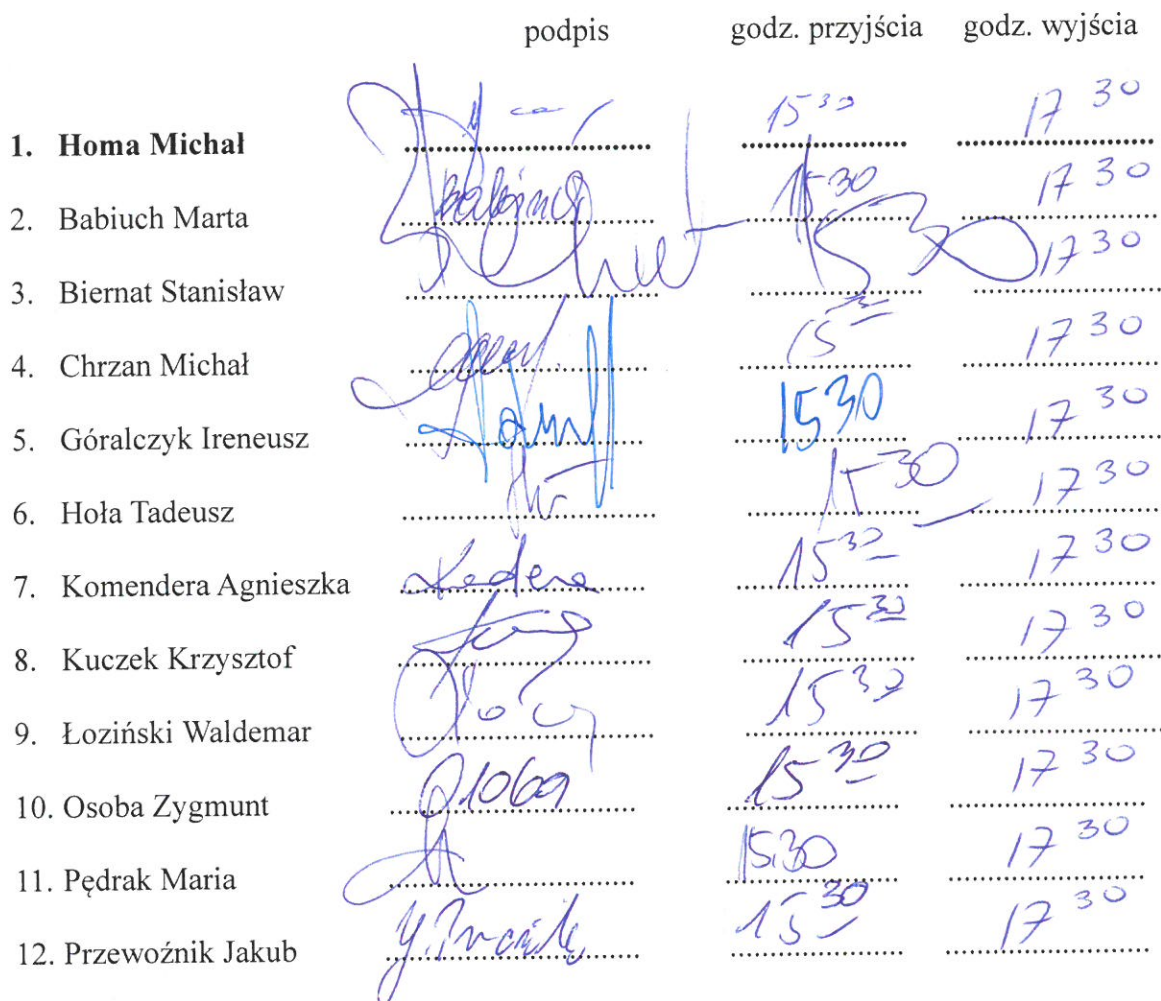 podpis godz. przyjścia godz. wyjścia
1. Homa Michał 15 30 17 30
2. Babiuch Marta 15 30 17 30
3. Biernat Stanisław 15 30 17 30
4. Chrzan Michał 15 17 30
5. Góralczyk Ireneusz 15 30 17 30
6. Hoła Tadeusz 15 30 17 30
7. Komendera Agnieszka 15 30 17 30
8. Kuczek Krzysztof 15 30 17 30
9. Łoziński Waldemar 15 30 17 30
10. Osoba Zygmunt 15 30 17 30
11. Pędrak Maria 15.30 17 30
12. Przewoźnik Jakub 15 30 17 30